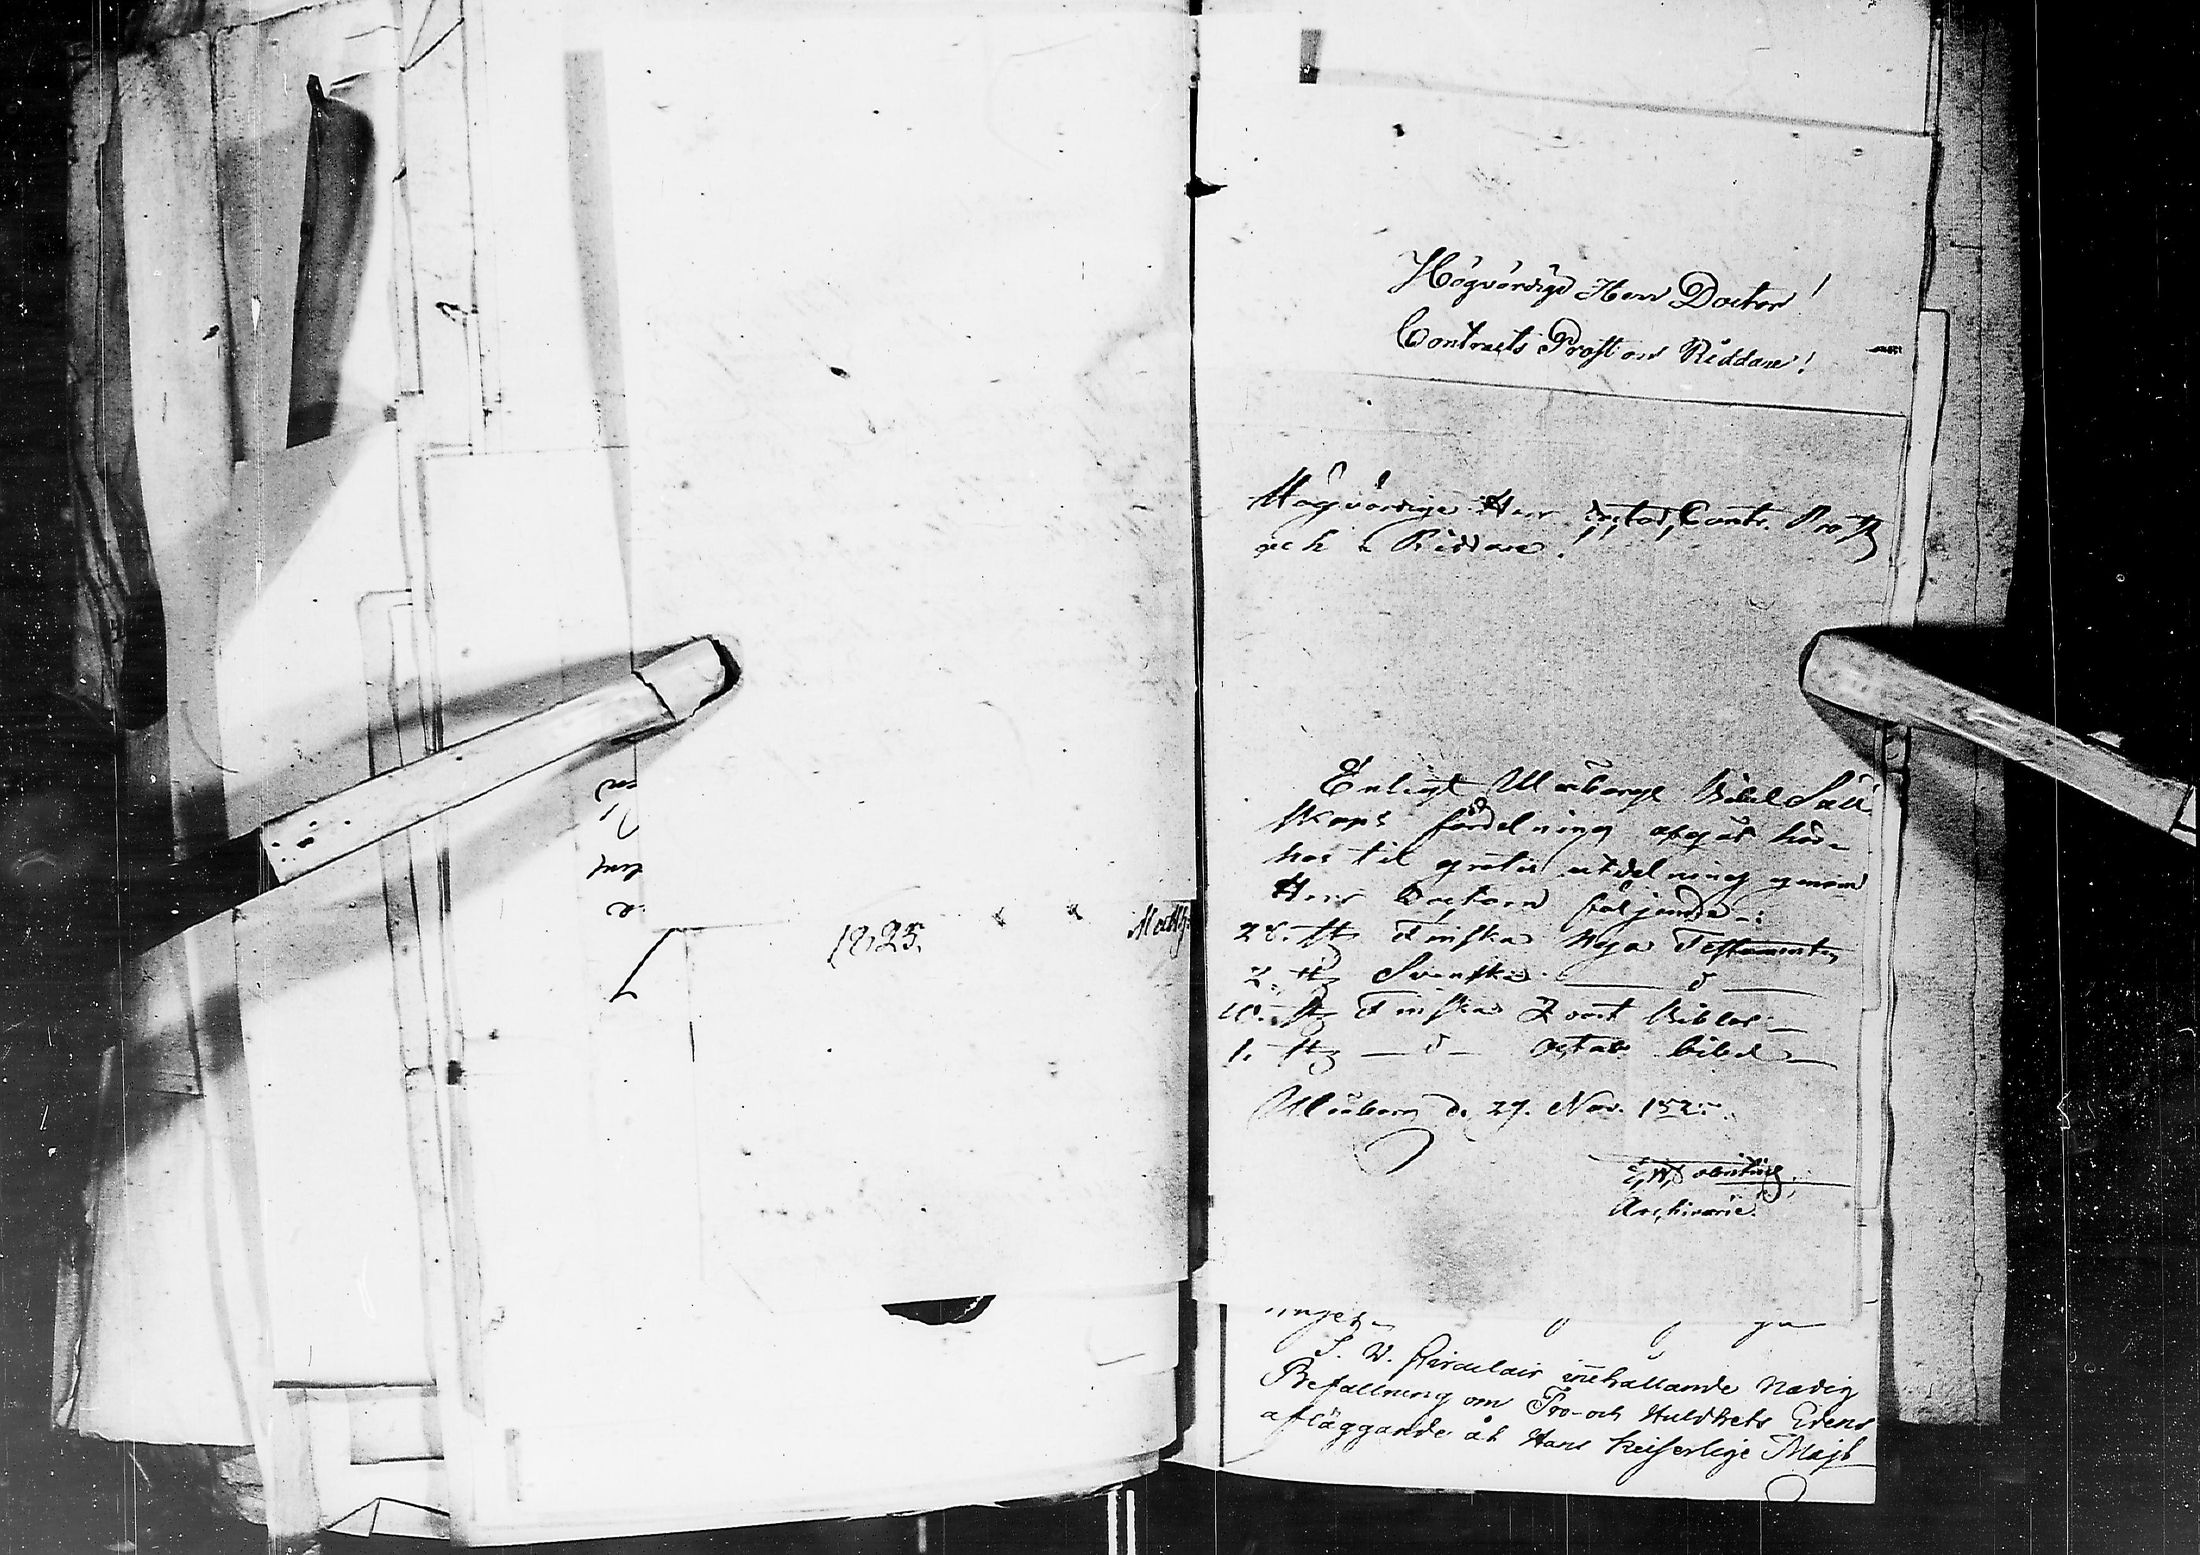 Högvördige Herr Doctor!
Contracts Prost och Riddare!
Högvördige Herr Doctor, Contr. Prost
och Riddare!
Enligt Uleåborgs Bibel Säll
skaps fördelning afgår här-
hos til gratis utdelning genom
Herr Doctorn följande:
28. st Finska Nya Testamenter
2. st Svenska — d —
10. st Finska Qvart Biblar
1. st — d — Octav bibel
Uleåborg d. 27. Nov. 1825.
Archivarie.
1825.
S. W. Circulair innehållande Nådig
Befallning om Tro- och Huldhets Edens
afläggande åt Hans Keiserlige Majt